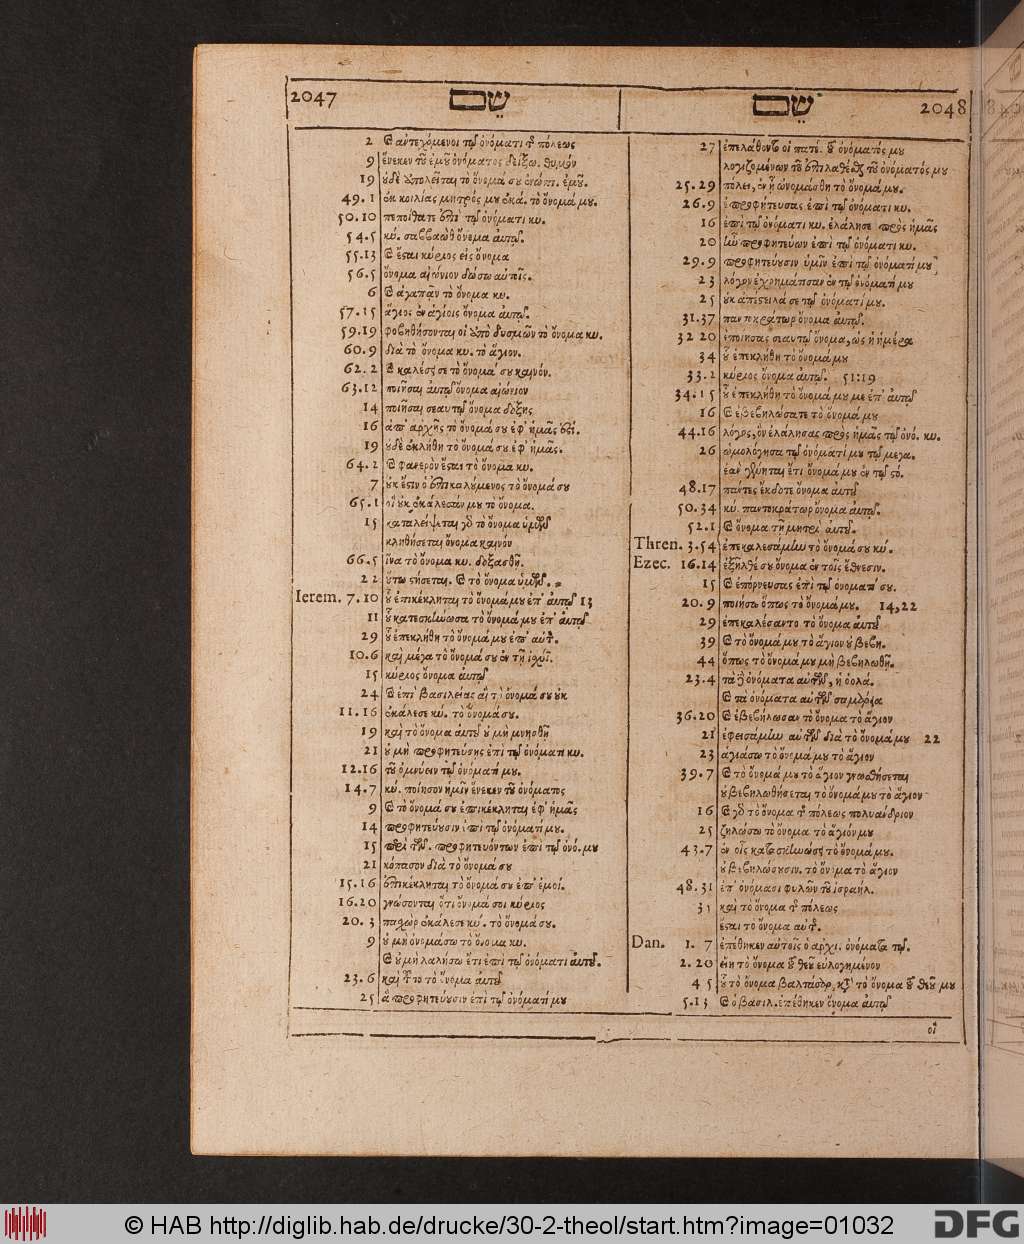 2047 שֵׁם
2 ἀντεχόμενοι τῷ ὀνόματι τῆς πόλεως
9 ἕνεκεν τοῦ ἐμοῦ ὀνόματος δείξω. θυμόν
19 οὐδὲ ἀπολεῖται τὸ ὄνομά σου ἐνώπι. ἐμοῦ.
49.1 ἐκ κοιλίας μητρός μου ἐκά. τὸ ὄνομά μου.
50.10 πεποίθατε ἐπὶ τῷ ὀνόματι κυ.
54.5 κύ. σαββαὼθ ὄνομα αὐτῷ.
55.13 Καὶ ἔσται κύριος εἰς ὄνομα
56.5 ὄνομα αἰώνιον δώσω αὐτοῖς.
6 Καὶ ἀγαπᾶν τὸ ὄνομα κυ.
57.15 ἅγιος ἐν ἁγίοις ὄνομα αὐτῷ.
59.19 φοβηθήσονται οἱ ἀπὸ δυσμῶν τὸ ὄνομα κυ.
60.9 διὰ τὸ ὄνομα κυ. τὸ ἅγιον.
62.2 καλέσει σε τὸ ὄνομά σου καινόν.
63.12 ποιῆσαι αὐτῷ ὄνομα αἰώνιον
14 ποιῆσαι σεαυτῷ ὄνομα δόξης
16 ἀπ' ἀρχῆς τὸ ὄνομά σου ἐφ' ἡμᾶς ἐστί.
19 οὐδὲ ἐκλήθη τὸ ὄνομά σου ἐφ' ἡμᾶς.
64.2 Καὶ φανερὸν ἔσται τὸ ὄνομα κυ.
7 οὐκ ἔστιν ὁ ἐπικαλούμενος τὸ ὄνομά σου
65.1 οἳ οὐκ ἐκάλεσάν μου τὸ ὄνομα.
15 καταλείψεται γὰρ τὸ ὄνομα ὑμῶν
κληθήσεται ὄνομα καινόν
66.5 ἵνα τὸ ὄνομα κυ. δοξασθῇ.
22 οὕτω στήσεται. Καὶ τὸ ὄνομα ὑμῶν.
Ierem. 7.10 οὗ ἐπικέκληται τὸ ὄνομά μου ἐπ' αὐτῷ 13
11 οὗ κατεσκήνωσα τὸ ὄνομά μου ἐπ' αὐτῷ
29 οὗ ἐπεκλήθη τὸ ὄνομά μου ἐπ' αὐτ.
10.6 καὶ μέγα τὸ ὄνομά σου ἐν τῇ ἰσχύϊ.
15 κύριος ὄνομα αὐτῷ
24 Καὶ ἐπὶ βασιλείας αἳ τὸ ὄνομά σου οὐκ
11.16 ἐκάλεσε κύ. τὸ ὄνομά σου.
19 καὶ τὸ ὄνομα αὐτοῦ οὐ μὴ μνησθῇ
21 οὐ μὴ προφητεύσῃς ἐπὶ τῷ ὀνόματι κυ.
12.16 τοῦ ὀμνύειν τῷ ὀνόματί μου.
14.7 κυ. ποίησον ἡμῖν ἕνεκεν τοῦ ὀνόματος
9 Καὶ τὸ ὄνομά σου ἐπικέκληται ἐφ' ἡμᾶς
14 προφητεύουσιν ἐπὶ τῷ ὀνόματί μου.
15 περὶ τῶν. προφητευόντων ἐπὶ τῷ ὀνό. μου
21 κόπασον διὰ τὸ ὄνομά σου
15.16 ἐπικέκληται τὸ ὄνομά σου ἐπ' ἐμοί.
16.20 γνώσονται ὅτι ὄνομά σοι κύριος
20.3 παχὼρ ἐκάλεσε κύ. τὸ ὄνομά σου.
9 οὐ μὴ ὀνομάσω τὸ ὄνομα κυ.
Καὶ οὐ μὴ λαλήσω ἔτι ἐπὶ τῷ ὀνόματι αὐτοῦ.
23.6 καὶ τοῦτο τὸ ὄνομα αὐτοῦ
25 ἃ προφητεύουσιν ἐπὶ τῷ ὀνόματί μου
שֵׁם 2048
27 ἐπελάθοντο οἱ πατέ. τοῦ ὀνόματός μου
λογιζομένων τοῦ ἐπιλαθέσθαι τοῦ ὀνόματός μου
25.29 πόλει, ἐν ᾗ ὠνομάσθη τὸ ὄνομά μου.
26.9 ἐπροφήτευσας ἐπὶ τῷ ὀνόματι κυ.
16 ἐπὶ τῷ ὀνόματι κυ. ἐλάλησε πρὸς ἡμᾶς
20 ἦν προφητεύων ἐπὶ τῷ ὀνόματι κυ.
29.9 προφητεύουσιν ὑμῖν ἐπὶ τῷ ὀνόματί μου
23 λόγον ἐχρημάτισαν ἐν τῷ ὀνόματί μου
25 οὐκ ἀπέστειλά σε τῷ ὀνόματί μου.
31.37 παντοκράτωρ ὄνομα αὐτῷ.
32 20 ἐποίησας σεαυτῷ ὄνομα, ὡς ἡ ἡμέρα
34 οὗ ἐπεκλήθη τὸ ὄνομά μου
33.2 κύριος ὄνομα αὐτῷ. 51:19
34.15 οὗ ἐπεκλήθη τὸ ὄνομά μου με ἐπ' αὐτῷ
16 Καὶ ἐβεβηλώσατε τὸ ὄνομά μου
44.16 λόγος, ὃν ἐλάλησας πρὸς ἡμᾶς τῷ ὀνό. κυ.
26 ὡμολόγησα τῷ ὀνόματί μου τῷ μεγα.
ἐὰν γένηται ἔτι ὄνομά μου ἐν τῷ στό.
48.17 πάντες ἔκδοτε ὄνομα αὐτοῦ
50.34 κύ. παντοκράτωρ ὄνομα αὐτῷ.
52.1 Καὶ ὄνομα τῇ μητρὶ αὐτοῦ.
Thren. 3.54 ἐπεκαλεσάμην τὸ ὄνομά σου κύ.
Ezec. 16.14 ἐξῆλθέ σου ὄνομα ἐν τοῖς ἔθνεσιν.
15 Καὶ ἐπόρνευσας ἐπὶ τῷ ὀνόματί σου.
20.9 ποιήσω ὅπως τὸ ὄνομά μου. 14,22
29 ἐπεκαλέσαντο τὸ ὄνομα αὐτοῦ
39 Καὶ τὸ ὄνομά μου τὸ ἅγιον οὐ βεβη.
44 ὅπως τὸ ὄνομά μου μὴ βεβηλωθῇ.
23.4 τὰ δὲ ὀνόματα αὐτῶν, ἡ ὀολά.
Καὶ τὰ ὀνόματα αὐτῶν σαμάρεια
36.20 Καὶ ἐβεβήλωσαν τὸ ὄνομα τὸ ἅγιον
21 ἐφεισάμην αὐτῶν διὰ τὸ ὄνομά μου 22
23 ἁγιάσω τὸ ὄνομά μου τὸ ἅγιον
39.7 Καὶ τὸ ὄνομά μου τὸ ἅγιον γνωσθήσεται
οὐ βεβηλωθήσεται τὸ ὄνομά μου τὸ ἅγιον
16 Καὶ γὰρ τὸ ὄνομα τῆς πόλεως πολυάνδριον
25 ζηλώσω τὸ ὄνομα τὸ ἅγιόν μου
43.7 ἐν οἷς κατασκηνώσει τὸ ὄνομά μου.
οὐ βεβηλώσουσιν. τὸ ὄνομα τὸ ἅγιον
48.31 ἐπ' ὀνόμασι φυλῶν τοῦ ἰσραήλ.
31 καὶ τὸ ὄνομα τῆς πόλεως
ἔσται τὸ ὄνομα αὐτῆς.
Dan. 1.7 ἐπέθηκεν αὐτοῖς ὁ ἀρχι. ὀνόματα τῷ.
2.20 εἴη τὸ ὄνομα τοῦ θεοῦ εὐλογημένον
4 5 οὗ τὸ ὄνομα βαλτάσαρ, κατὰ τὸ ὄνομα τοῦ θεοῦ μου
5.13 Καὶ ὁ βασιλ. ἐπέθηκεν ὄνομα αὐτῷ
οἱ
© HAB http://diglib.hab.de/drucke/30-2-theol/start.htm?image=01032
DFG